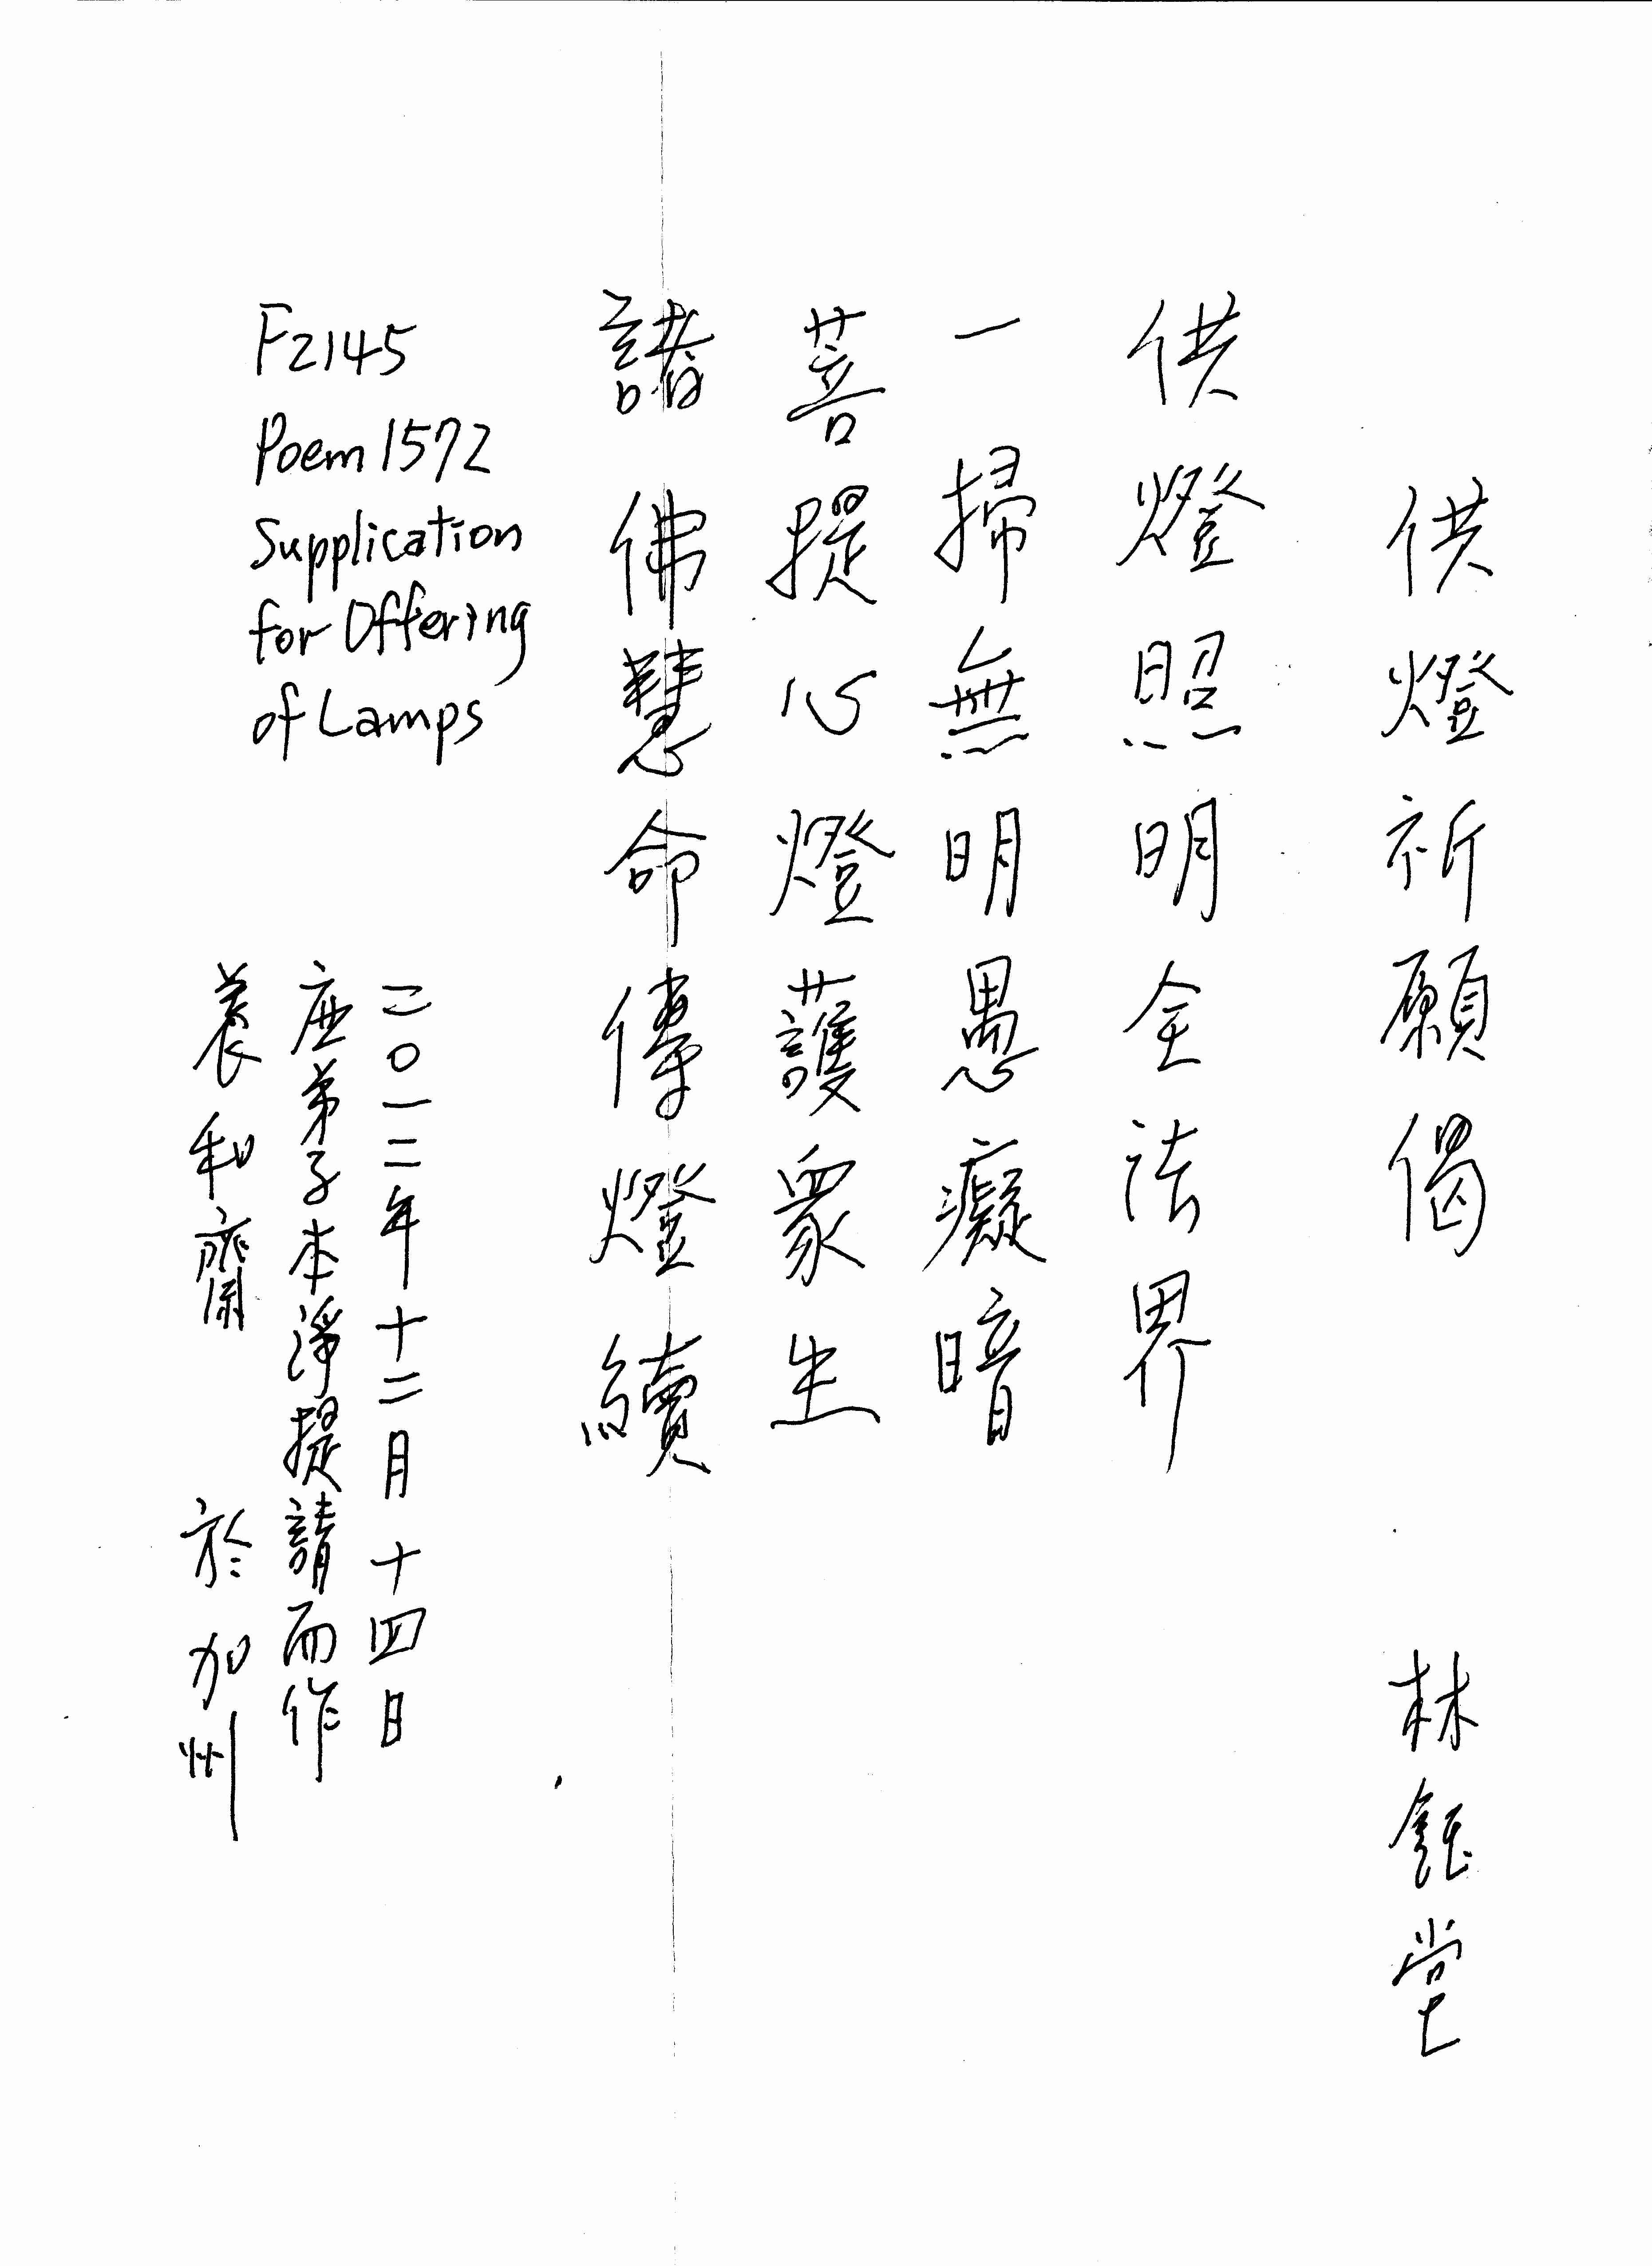 供燈祈願偈 林鈺堂
供燈照明全法界
一掃無明愚癡暗
菩提心燈護眾生
諸佛慧命傳燈續
二〇一二年十二月十四日
應弟子本淨提請而作
養和齋 於加州
F2145
Poem 1572
Supplication
for Offering
of Lamps